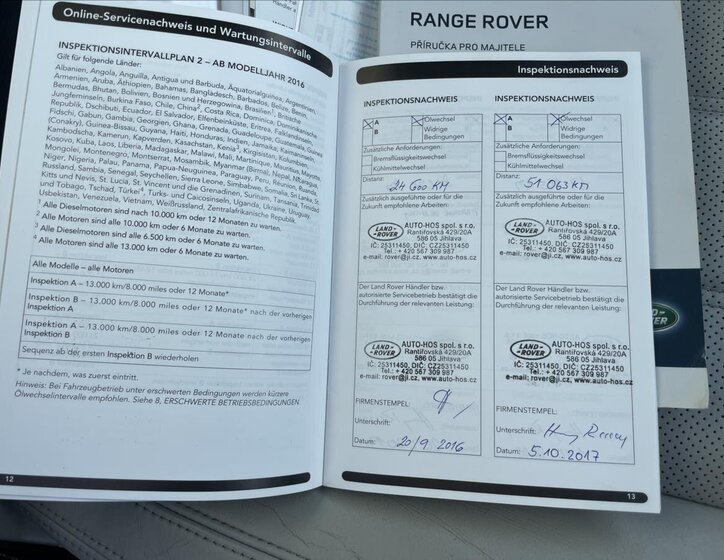 RANGE ROVER
PŘÍRUČKA PRO MAJITELE
Online-Servicenachweis und Wartungsintervalle
INSPEKTIONSINTERVALLPLAN 2 – AB MODELLJAHR 2016
Gilt für folgende Länder:
Albanien, Angola, Anguilla, Antigua und Barbuda, Äquatorialguinea, Argentinien,
Armenien, Aruba, Äthiopien, Bahamas, Bangladesch, Barbados, Belize, Benin,
Bermudas, Bhutan, Bolivien, Bosnien und Herzegowina, Brasilien¹, Britische
Jungferninseln, Burkina Faso, Chile, China², Costa Rica, Dominica, Dominikanische
Republik, Dschibuti, Ecuador, El Salvador, Elfenbeinküste, Eritrea, Falklandinseln,
Fidschi, Gabun, Gambia, Georgien, Ghana, Grenada, Guadeloupe, Guatemala, Guinea
(Conakry), Guinea-Bissau, Guyana, Haiti, Honduras, Indien, Jamaika, Kaimaninseln,
Kambodscha, Kamerun, Kapverden, Kasachstan, Kirgisistan, Kolumbien,
Kosovo, Kuba, Laos, Liberia, Madagaskar, Malawi, Mali, Martinique, Mauritius, Mexiko,
Mongolei, Montenegro, Montserrat, Mosambik, Myanmar (Birma), Nepal,
Niger, Nigeria, Palau, Panama, Papua-Neuguinea, Paraguay, Peru, Réunion,
Russland, Sambia, Senegal, Seychellen, Sierra Leone, Simbabwe, Somalia, Sri Lanka, St.
Kitts und Nevis, St. Lucia, St. Vincent und die Grenadinen, Surinam, Tansania, Trinidad
und Tobago, Tschad, Türkei⁴, Turks- und Caicosinseln, Uganda, Ukraine, Uruguay,
Usbekistan, Venezuela, Vietnam, Weißrussland, Zentralafrikanische Republik
¹ Alle Dieselmotoren sind nach 10.000 km oder 12 Monaten zu warten.
² Alle Motoren sind alle 10.000 km oder 6 Monate zu warten.
³ Alle Dieselmotoren sind alle 6.500 km oder 6 Monate zu warten.
⁴ Alle Motoren sind alle 13.000 km oder 6 Monate zu warten.
Alle Modelle – alle Motoren
Inspektion A – 13.000 km/8.000 miles oder 12 Monate*
Inspektion B – 13.000 km/8.000 miles oder 12 Monate* nach der vorherigen
Inspektion A
Inspektion A – 13.000 km/8.000 miles oder 12 Monate nach der vorherigen
Inspektion B
Sequenz ab der ersten Inspektion B wiederholen
* Je nachdem, was zuerst eintritt.
Hinweis: Bei Fahrzeugbetrieb unter erschwerten Bedingungen werden kürzere
Ölwechselintervalle empfohlen. Siehe 8, ERSCHWERTE BETRIEBSBEDINGUNGEN.
12
Inspektionsnachweis
INSPEKTIONSNACHWEIS
A
B
Ölwechsel
Widrige
Bedingungen
Zusätzliche Anforderungen:
Bremsflüssigkeitswechsel
Kühlmittelwechsel
Distanz:
24 600 KM
Zusätzlich ausgeführte oder für die
Zukunft empfohlene Arbeiten:
LAND-
ROVER
AUTO-HOS spol. s r.o.
Rantířovská 429/20A
586 05 Jihlava
IČ: 25311450, DIČ: CZ25311450
Tel.: + 420 567 309 987
e-mail: rover@ji.cz, www.auto-hos.cz
Der Land Rover Händler bzw.
autorisierte Servicebetrieb bestätigt die
Durchführung der relevanten Leistung:
LAND-
ROVER
AUTO-HOS spol. s r.o.
Rantířovská 429/20A
586 05 Jihlava
IČ: 25311450, DIČ: CZ25311450
Tel.: + 420 567 309 987
e-mail: rover@ji.cz, www.auto-hos.cz
FIRMENSTEMPEL:
Unterschrift:
Datum: 20/9. 2016
INSPEKTIONSNACHWEIS
A
B
Ölwechsel
Widrige
Bedingungen
Zusätzliche Anforderungen:
Bremsflüssigkeitswechsel
Kühlmittelwechsel
Distanz:
51 063 KM
Zusätzlich ausgeführte oder für die
Zukunft empfohlene Arbeiten:
LAND-
ROVER
AUTO-HOS spol. s r.o.
Rantířovská 429/20A
586 05 Jihlava
IČ: 25311450, DIČ: CZ25311450
Tel.: + 420 567 309 987
e-mail: rover@ji.cz, www.auto-hos.cz
Der Land Rover Händler bzw.
autorisierte Servicebetrieb bestätigt die
Durchführung der relevanten Leistung:
LAND-
ROVER
AUTO-HOS spol. s r.o.
Rantířovská 429/20A
586 05 Jihlava
IČ: 25311450, DIČ: CZ25311450
Tel.: + 420 567 309 987
e-mail: rover@ji.cz, www.auto-hos.cz
FIRMENSTEMPEL:
Unterschrift:
Datum: 5.10.2017
13
LAND-
ROVER